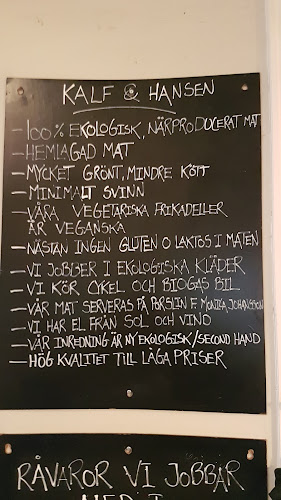 KALF & HANSEN
- 100% EKOLOGISK, NÄRPRODUCERAT MAT
- HEMLAGAD MAT
- MYCKET GRÖNT, MINDRE KÖTT
- MINIMALT SVINN
- VÅRA VEGETARISKA FRIKADELLER
ÄR VEGANSKA
- NÄSTAN INGEN GLUTEN O LAKTOS I MATEN
- VI JOBBER I EKOLOGISKA KLÄDER
- VI KÖR CYKEL OCH BIOGAS BIL
- VÅR MAT SERVERAS PÅ PORSLIN F. MONICA JOHANSSON
- VI HAR EL FRÅN SOL OCH VIND
- VÅR INREDNING ÄR NY EKOLOGISK/SECOND HAND
- HÖG KVALITET TILL LÅGA PRISER
RÅVAROR VI JOBBAR
MED I